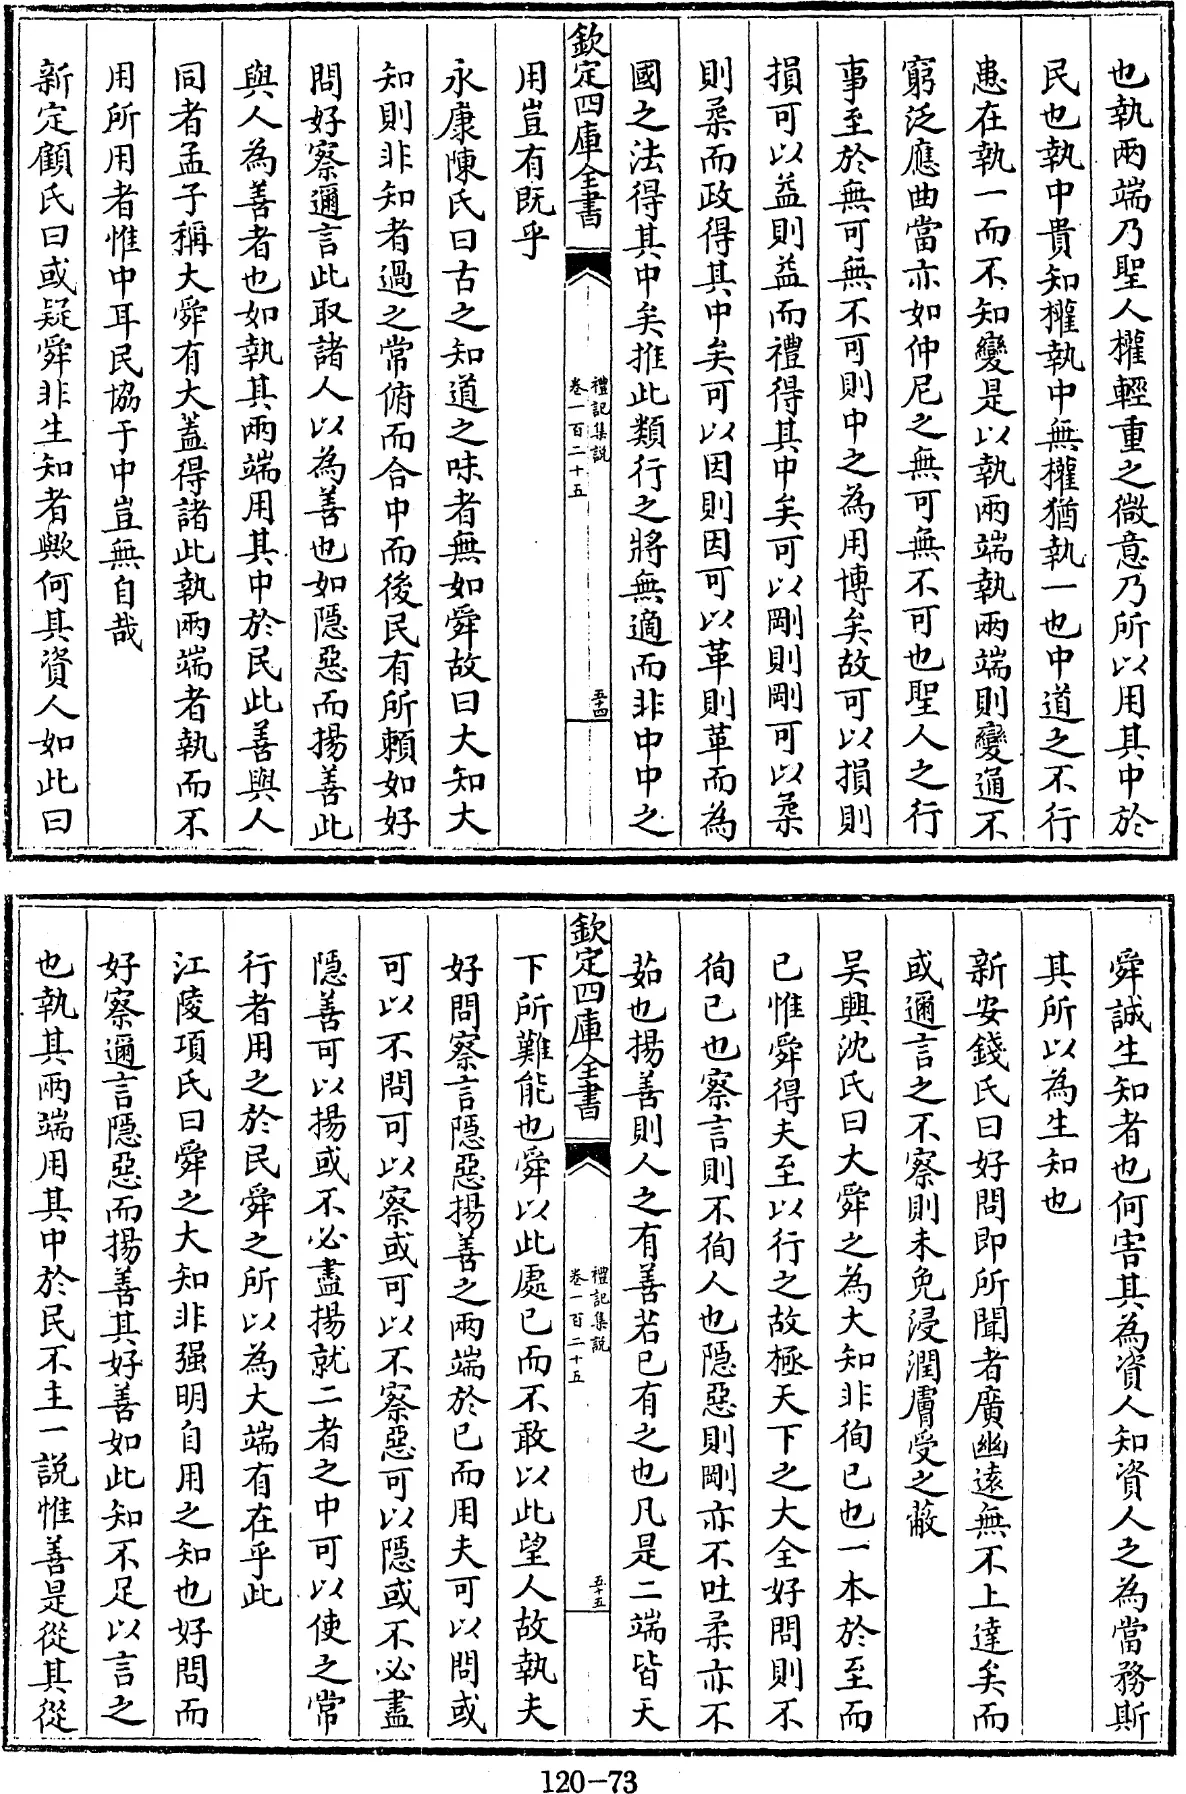 也執兩端乃聖人權輕重之微意乃所以用其中於
民也執中貴知權執中無權猶執一也中道之不行
患在執一而不知變是以執兩端執兩端則變通不
窮泛應曲當亦如仲尼之無可無不可也聖人之行
事至於無可無不可則中之為用博矣故可以損則
損可以益則益而禮得其中矣可以剛則剛可以柔
則柔而政得其中矣可以因則因可以革則革而為
國之法得其中矣推此類行之將無適而非中中之
欽定四庫全書
禮記集說
卷一百二十五
五十四
用豈有既乎
永康陳氏曰古之知道之味者無如舜故曰大知大
知則非知者過之常俯而合中而後民有所賴如好
問好察邇言此取諸人以為善也如隱惡而揚善此
與人為善者也如執其兩端用其中於民此善與人
同者孟子稱大舜有大蓋得諸此執兩端者執而不
用所用者惟中耳民協于中豈無自哉
新定顧氏曰或疑舜非生知者歟何其資人如此曰
舜誠生知者也何害其為資人知資人之為當務斯
其所以為生知也
新安錢氏曰好問即所聞者廣幽遠無不上達矣而
或邇言之不察則未免浸潤膚受之蔽
吴興沈氏曰大舜之為大知非徇已也一本於至而
已惟舜得夫至以行之故極天下之大全好問則不
徇已也察言則不徇人也隱惡則剛亦不吐柔亦不
茹也揚善則人之有善若已有之也凡是二端皆天
欽定四庫全書
禮記集說
卷一百二十五
五十五
下所難能也舜以此處已而不敢以此望人故執夫
好問察言隱惡揚善之兩端於已而用夫可以問或
可以不問可以察或可以不察惡可以隱或不必盡
隱善可以揚或不必盡揚就二者之中可以使之常
行者用之於民舜之所以為大端有在乎此
江陵項氏曰舜之大知非强明自用之知也好問而
好察邇言隱惡而揚善其好善如此知不足以言之
也執其兩端用其中於民不主一說惟善是從其從
120-73